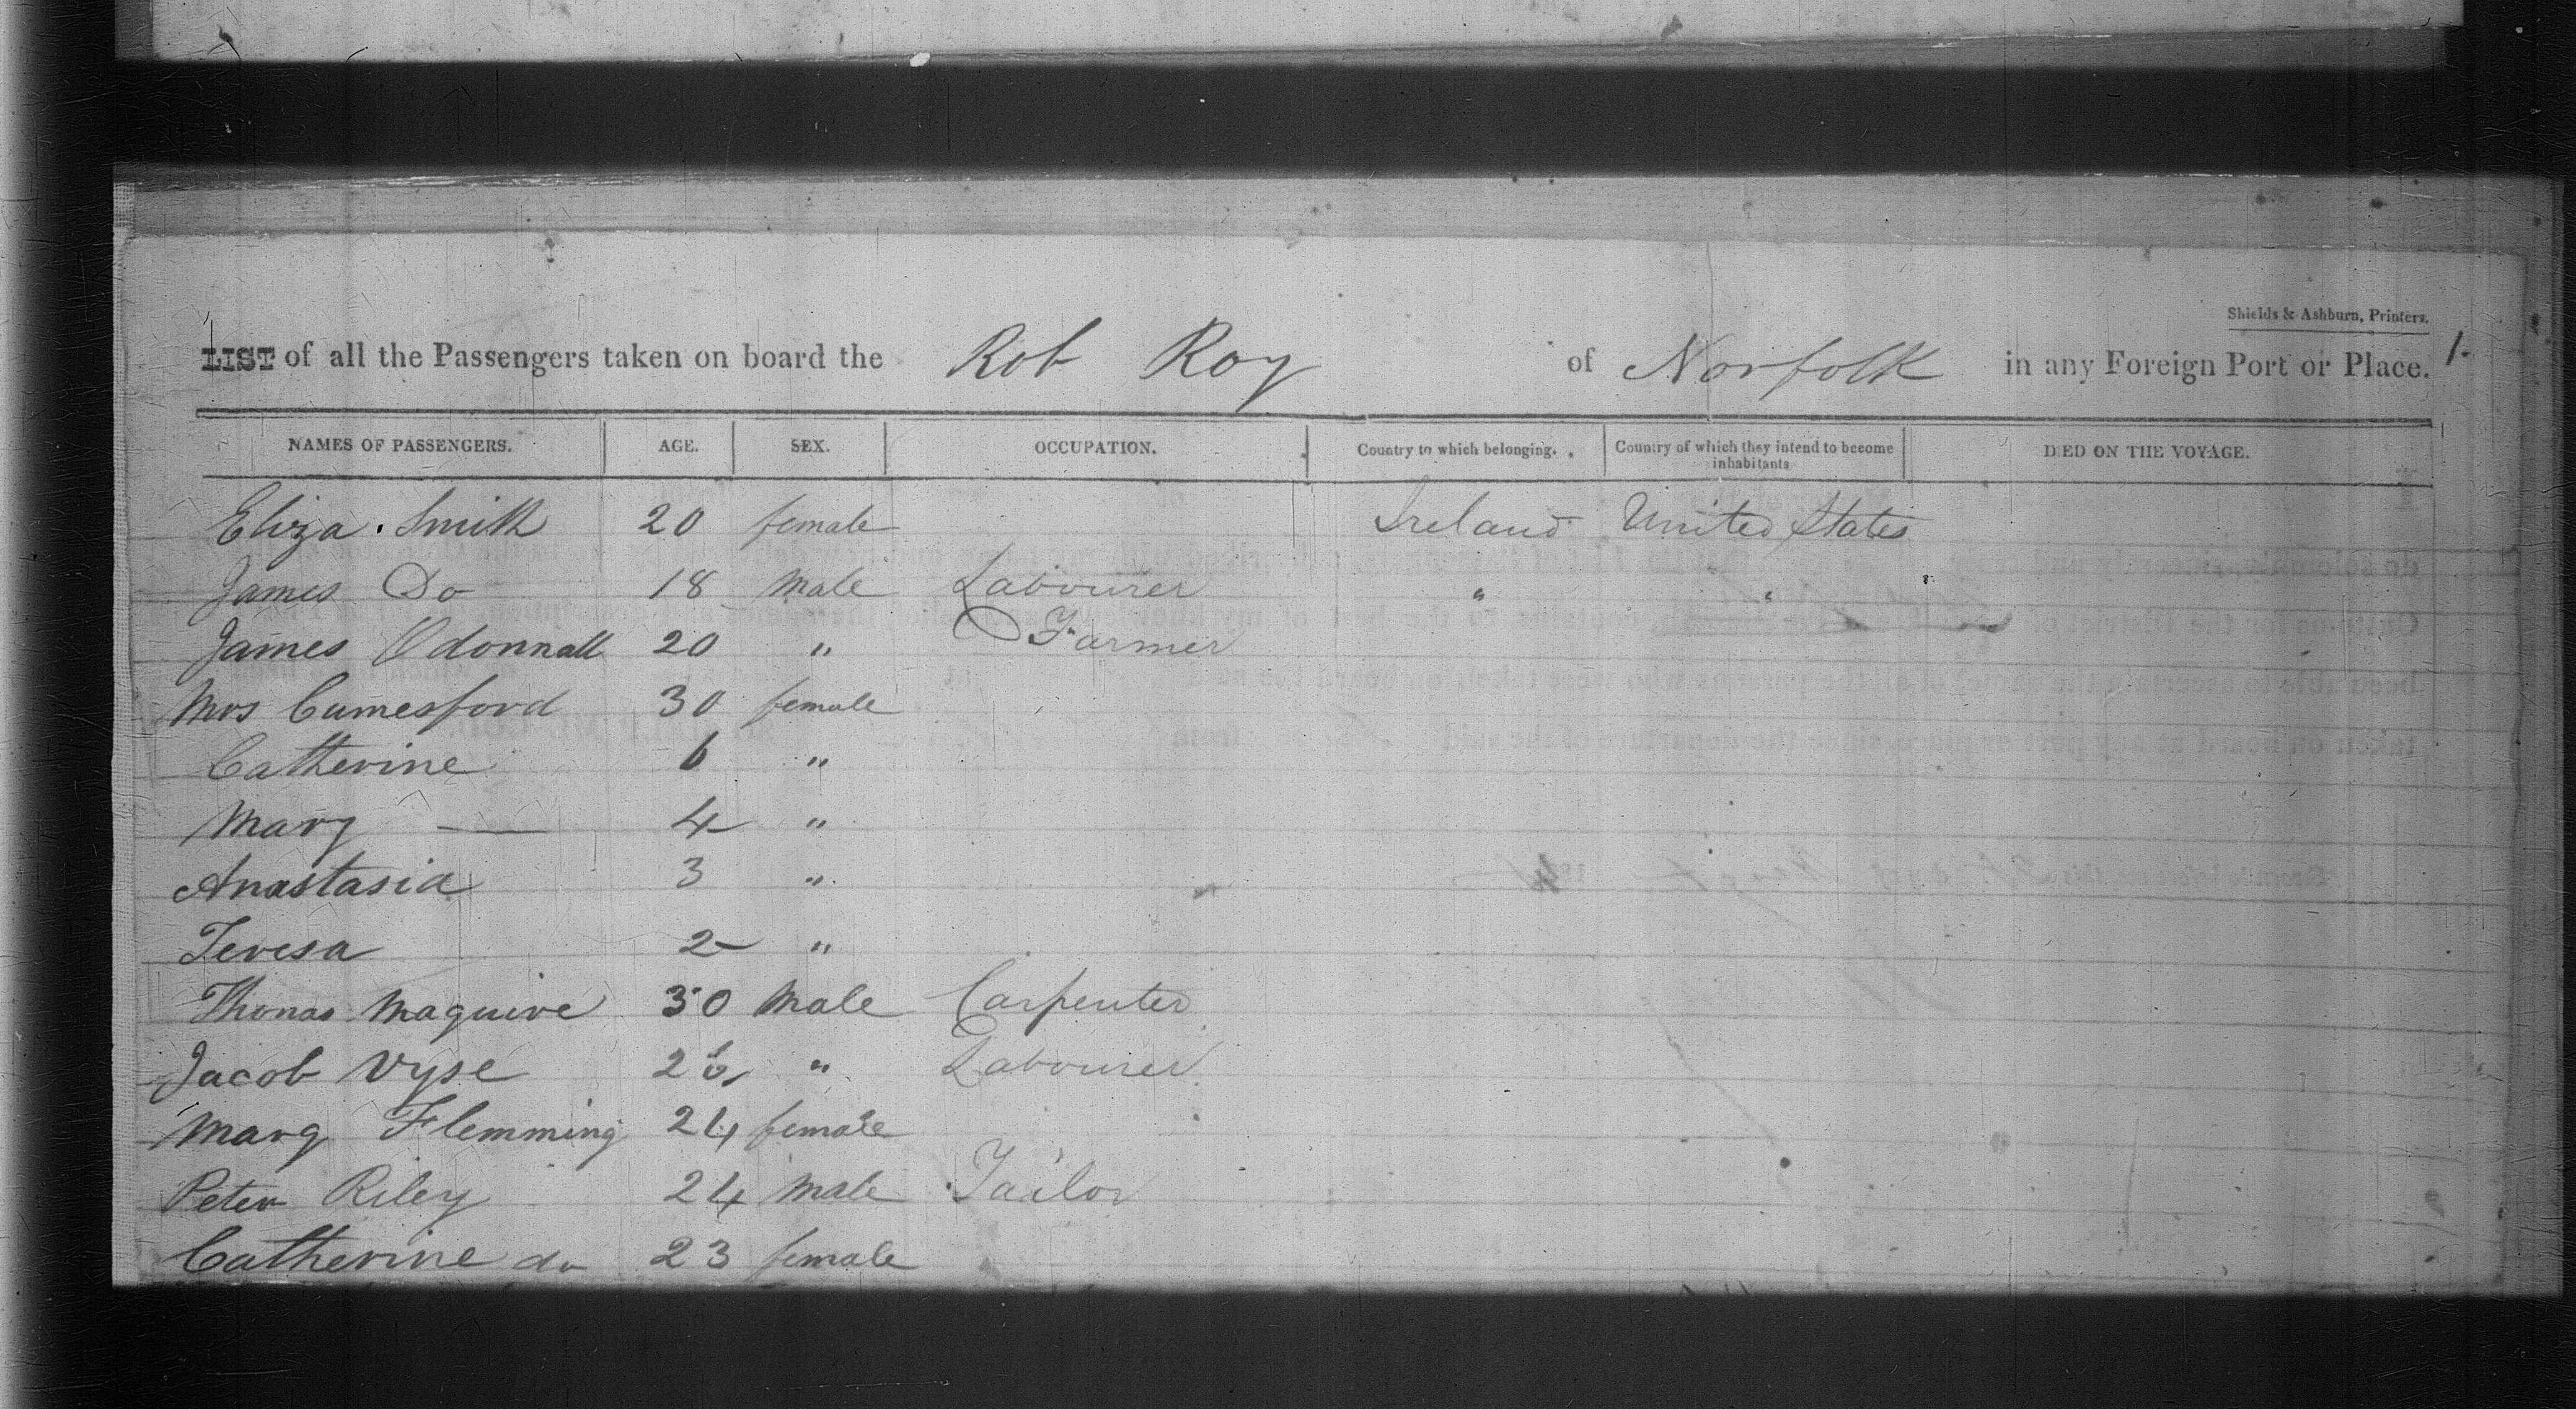 Shields & Ashburn, Printers.
LIST of all the Passengers taken on board the Rob Roy of Norfolk in any Foreign Port or Place. 1.
NAMES OF PASSENGERS. AGE. SEX. OCCUPATION. Country to which belonging. Country of which they intend to become inhabitants DIED ON THE VOYAGE.
Eliza Smith 20 female Ireland United States
James Do 18 Male Labourer " "
James Odonnall 20 " Farmer
Mrs Cumesford 30 female
Catherine 6 "
Mary — 4 "
Anastasia 3 "
Teresa 2 "
Thomas Maguire 30 Male Carpenter
Jacob Vyse 26 " Labourer
Mary Flemming 24 female
Peter Riley 24 Male Tailor
Catherine do 23 female